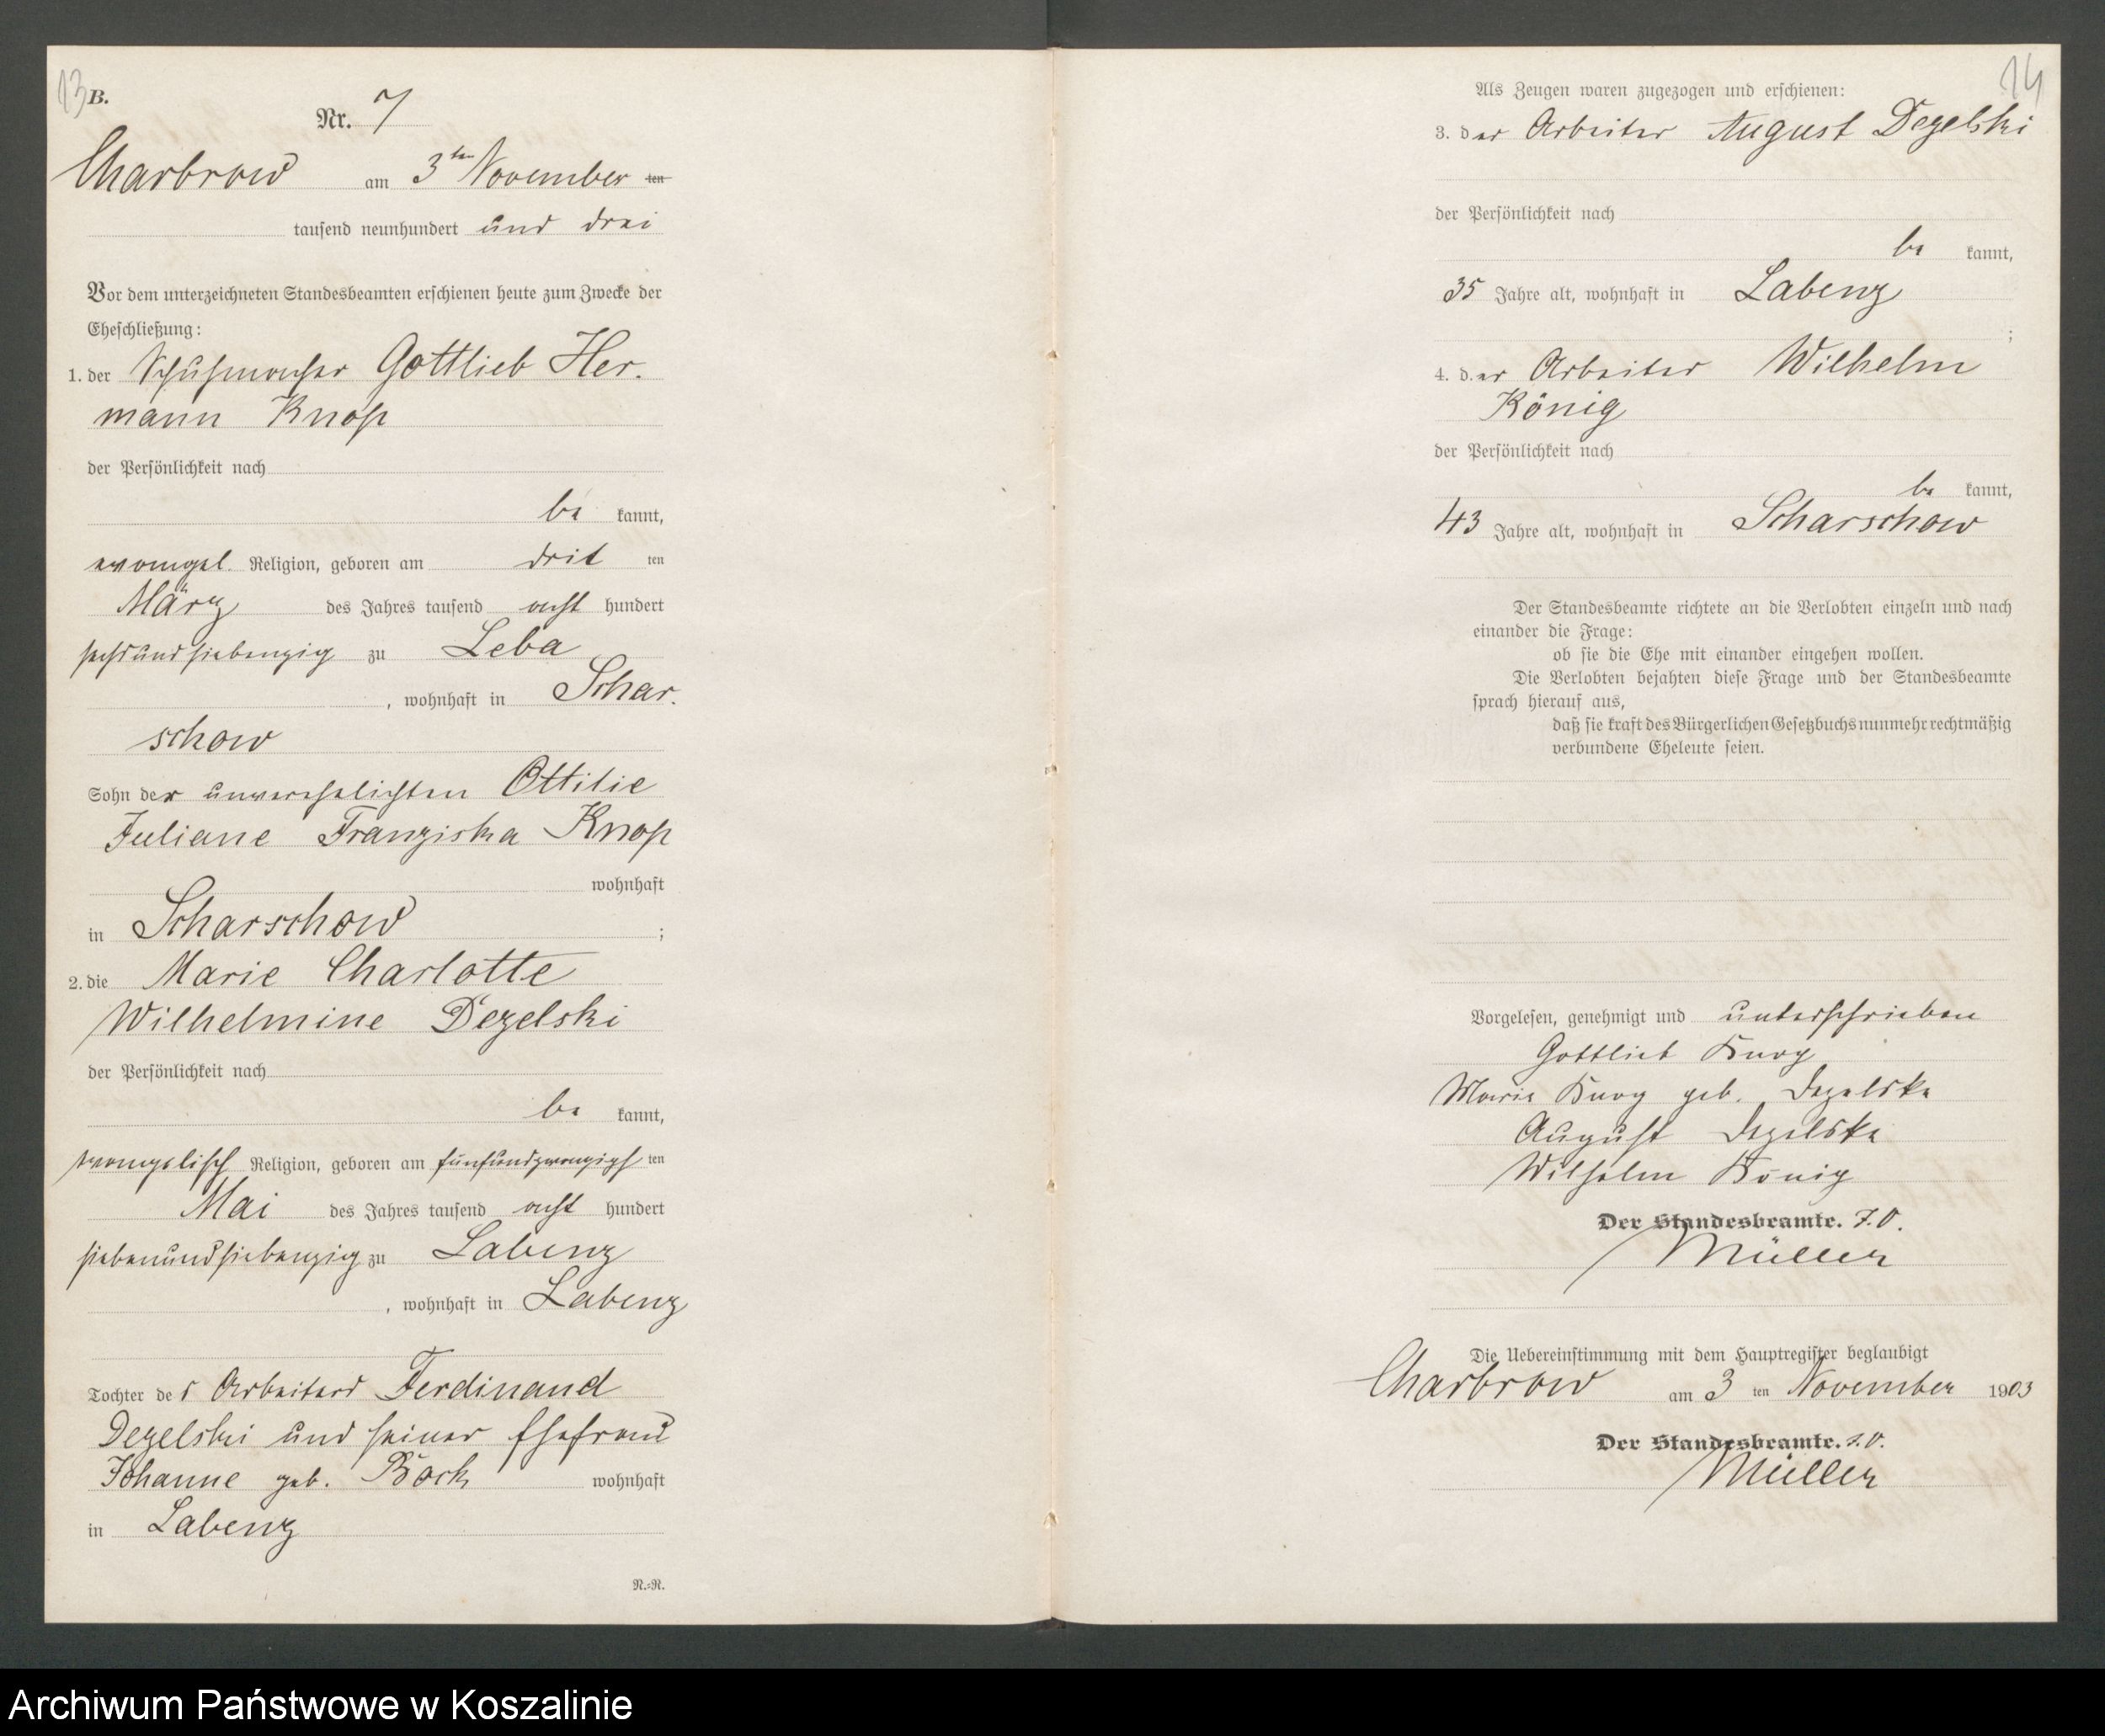 13 B.
Nr. 7
Charbrow am 3ten November ten
tausend neunhundert und drei
Vor dem unterzeichneten Standesbeamten erschienen heute zum Zwecke der
Eheschließung:
1. der Schuhmacher Gottlieb Her-
mann Knop
der Persönlichkeit nach
be kannt,
evangel. Religion, geboren am drit ten
März des Jahres tausend acht hundert
sechsundsiebenzig zu Leba
, wohnhaft in Schar-
schow
Sohn der unverehelichten Ottilie
Juliane Franziska Knop
wohnhaft
in Scharschow ;
2. die Marie Charlotte
Wilhelmine Dezelski
der Persönlichkeit nach
be kannt,
evangelisch Religion, geboren am fünfundzwanzigs ten
Mai des Jahres tausend acht hundert
siebenundsiebenzig zu Labenz
, wohnhaft in Labenz
Tochter des Arbeiters Ferdinand
Dezelski und seiner Ehefrau
Johanne geb. Bock wohnhaft
in Labenz
N.-N.
14
Als Zeugen waren zugezogen und erschienen:
3. der Arbeiter August Dezelski
der Persönlichkeit nach
be kannt,
35 Jahre alt, wohnhaft in Labenz
;
4. der Arbeiter Wilhelm
König
der Persönlichkeit nach
be kannt,
43 Jahre alt, wohnhaft in Scharschow
Der Standesbeamte richtete an die Verlobten einzeln und nach
einander die Frage:
ob sie die Ehe mit einander eingehen wollen.
Die Verlobten bejahten diese Frage und der Standesbeamte
sprach hierauf aus,
daß sie kraft des Bürgerlichen Gesetzbuchs nunmehr rechtmäßig
verbundene Eheleute seien.
Vorgelesen, genehmigt und unterschrieben
Gottlieb Knop
Marie Knop geb. Dezelske
August Dezelske
Wilhelm König
Der Standesbeamte.
Müller
Die Uebereinstimmung mit dem Hauptregister beglaubigt
Charbrow am 3 ten November 1903
Der Standesbeamte.
Müller
Archiwum Państwowe w Koszalinie